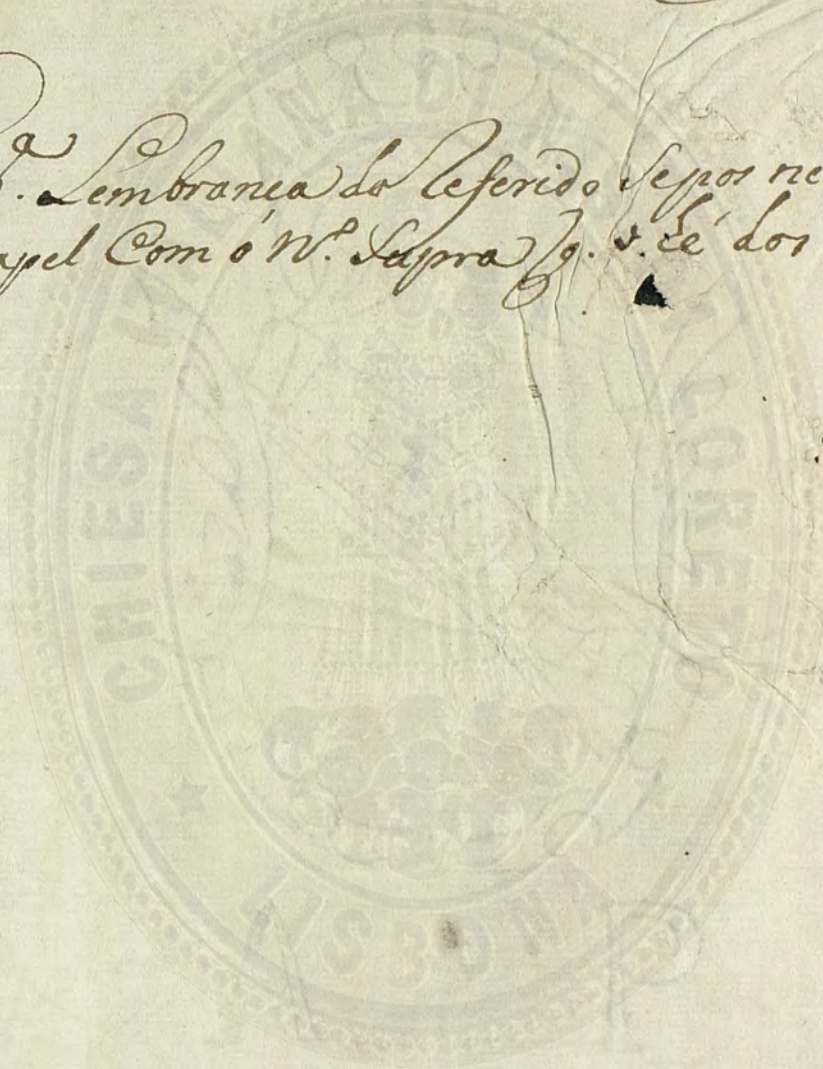 P.ª Lembranca do Referido Sepos ne
apel Com ó Nº. Supra
dos
CHIESA ITALIANA DI N. S. DI LORETO
LISBONA